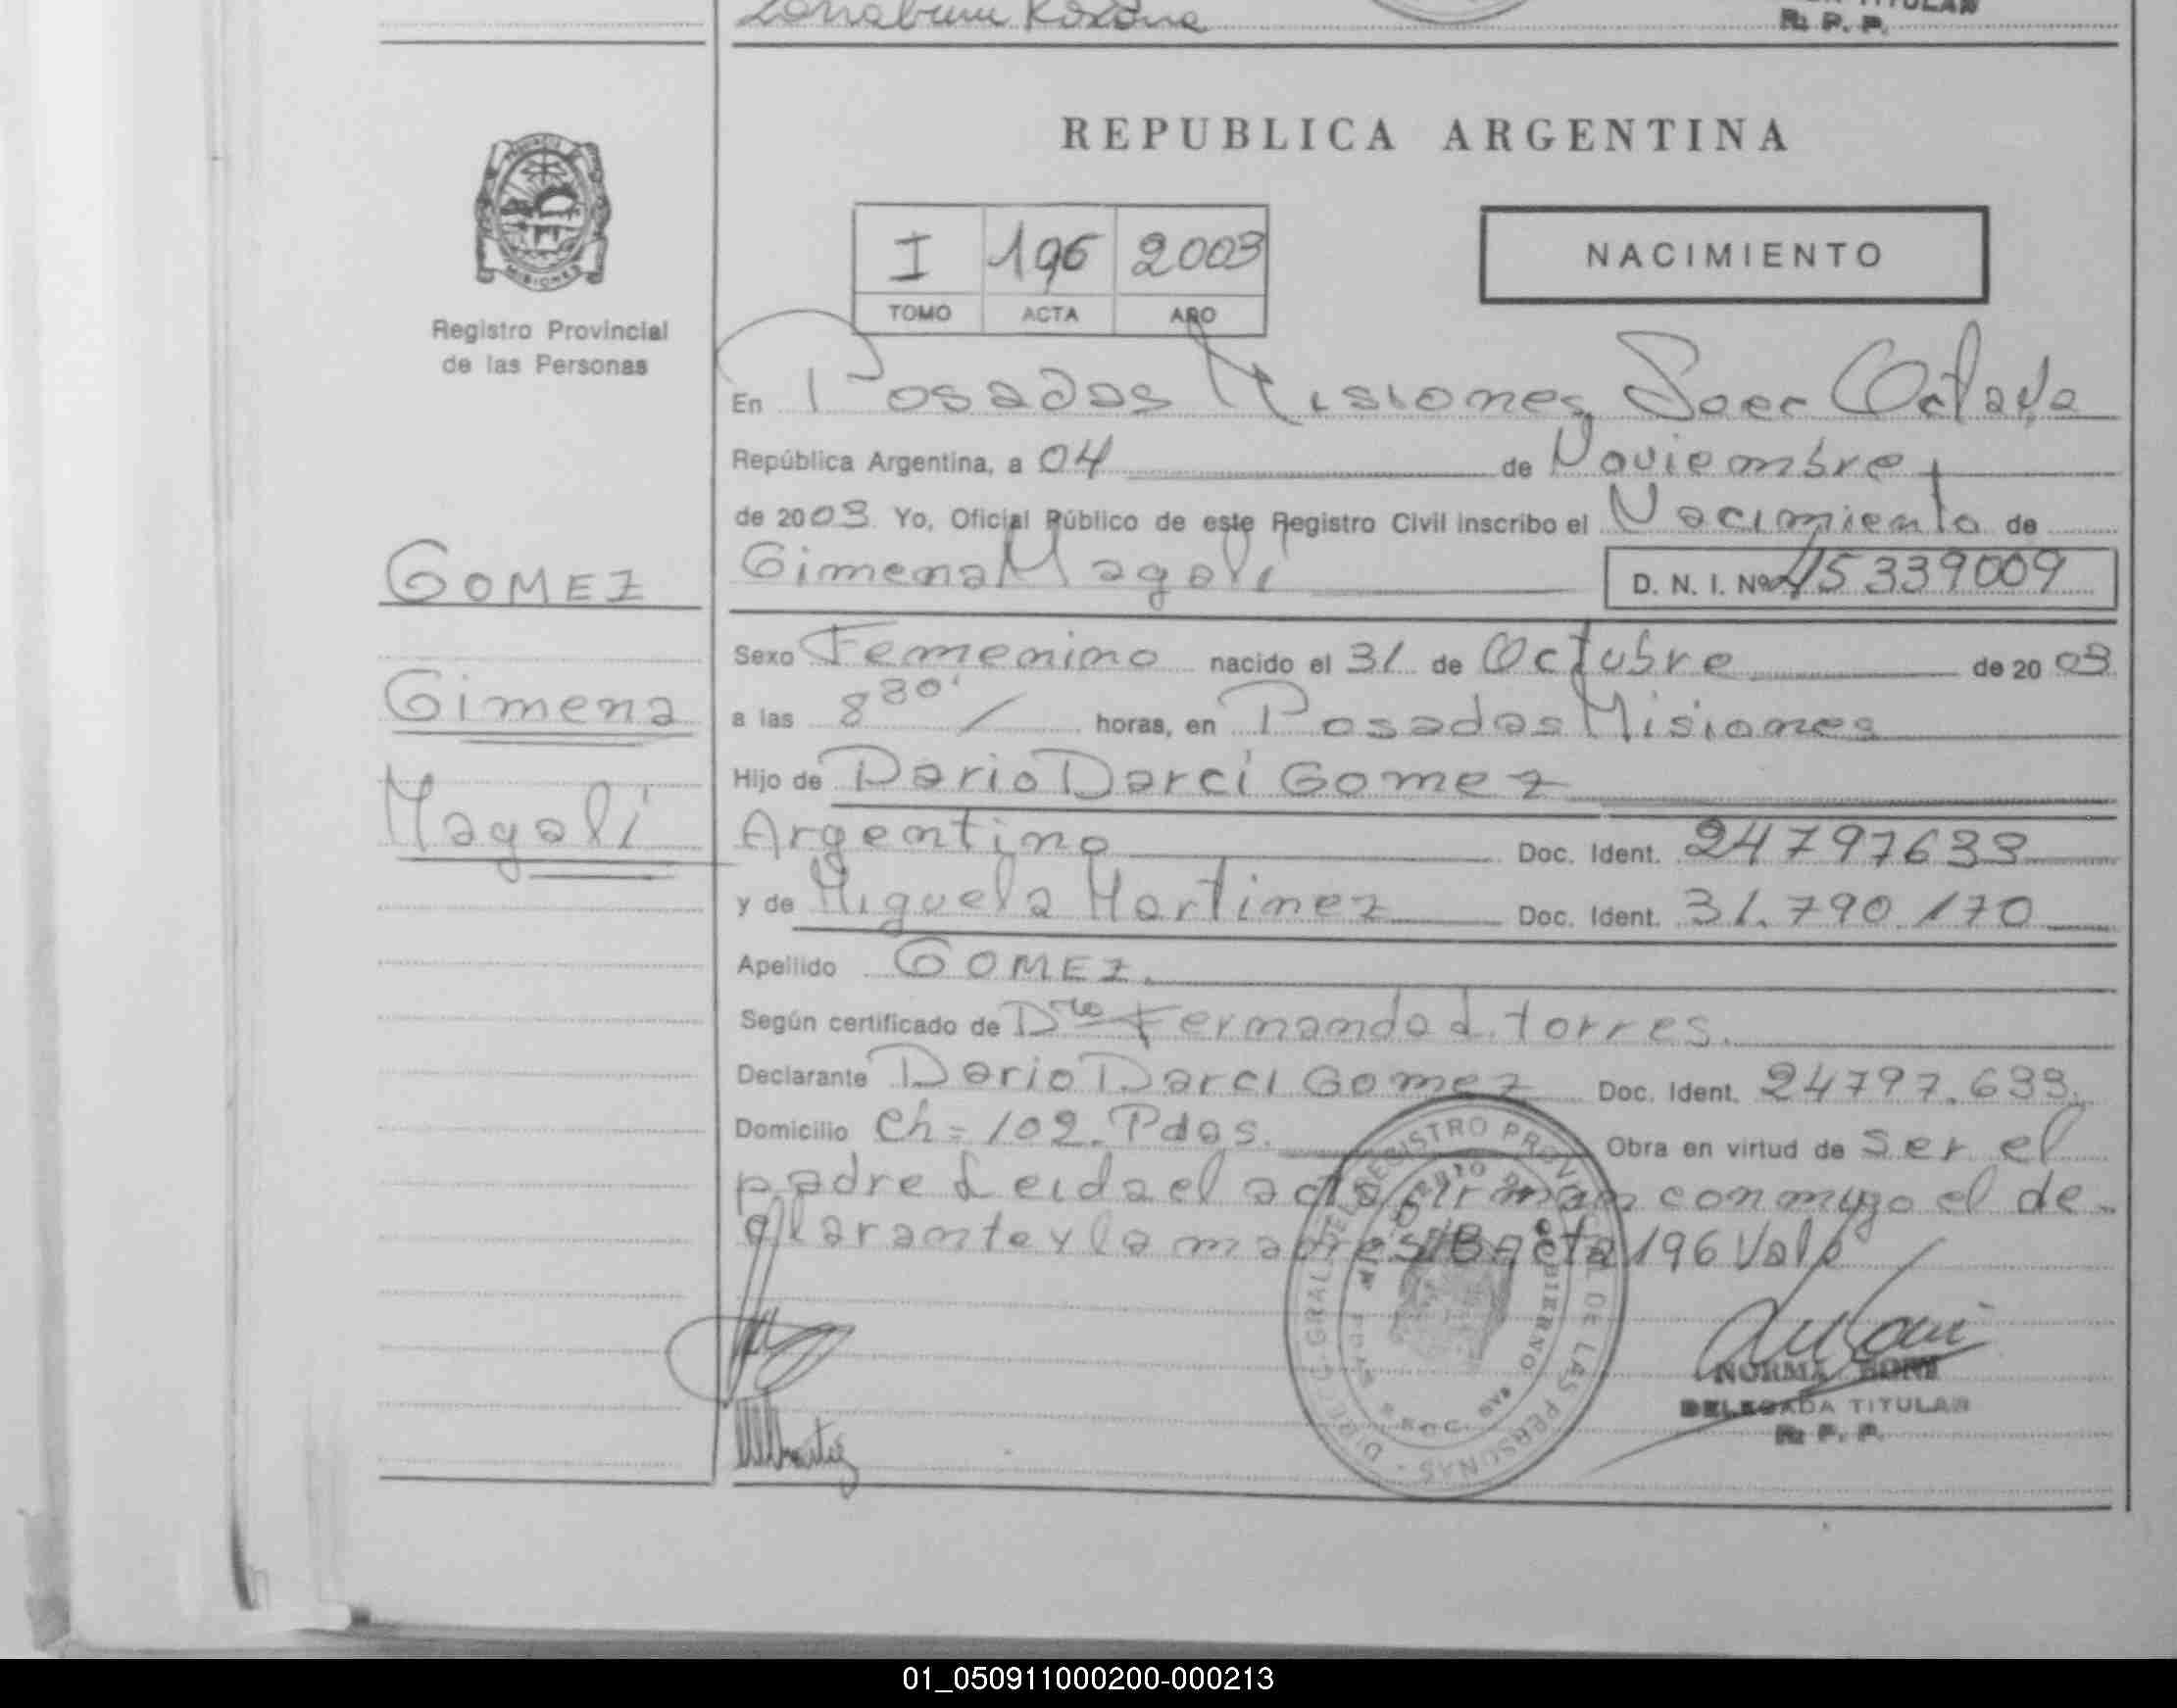 R. P. P.
REPUBLICA ARGENTINA
I 196 2003
TOMO ACTA AÑO
NACIMIENTO
Registro Provincial
de las Personas
En Posadas Misiones, Secc Octava
República Argentina, a 04 de Noviembre
de 2003 Yo, Oficial Público de este Registro Civil inscribo el Nacimiento de
GOMEZ
Gimena Magalí D. N. I. Nº 45339009
Sexo Femenino nacido el 31 de Octubre de 2003
Gimena
a las 8 30' horas, en Posadas Misiones
Hijo de Dario Darci Gomez
Magalí
Argentino Doc. Ident. 24797633
y de Miguela Martinez Doc. Ident. 31.790.170
Apellido GOMEZ.
Según certificado de Fernando L. torres.
Declarante Dario Darci Gomez Doc. Ident. 24797.633.
Domicilio Ch= 102. Pdas. Obra en virtud de ser el
padre Leida el acta firman conmigo el de-
clarante y la madre S/B acta 196 Vale
NORMA BONI
DELEGADA TITULAR
R. P. P.
01_050911000200-000213